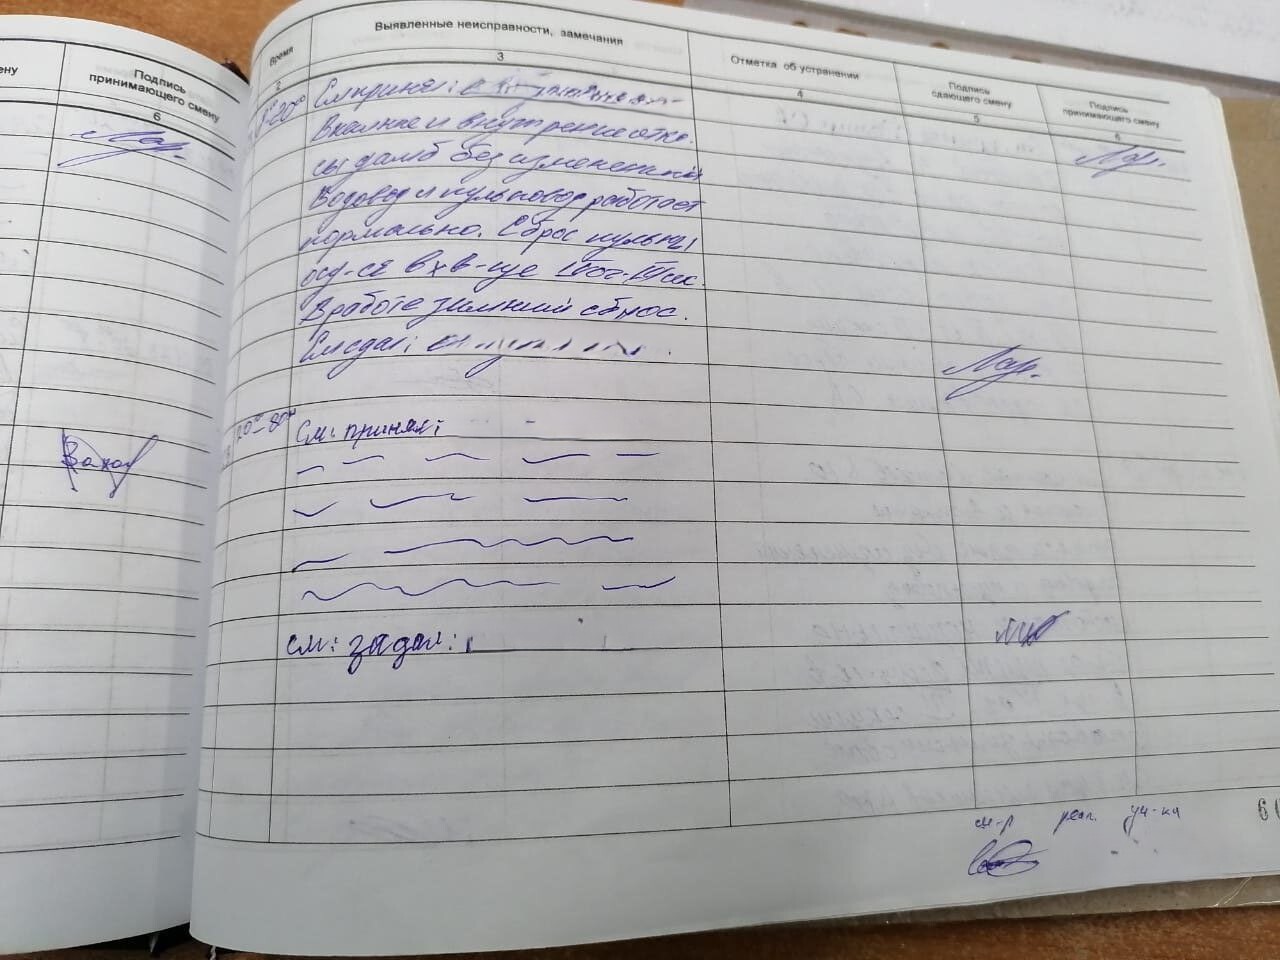 ену
Подпись
принимающего смену
6
Захар
Время
Выявленные неисправности, замечания
Отметка об устранении
Подпись
сдающего смену
Подпись
принимающего смену
2
3
4
5
6
8⁰⁰-20⁰⁰
См принял:
Внешние и внутренние отко-
сы дамб без изменений
Водовод и пульповод работает
нормально. Сброс пульпы
осу-ся в хв-ще
В работе зимний сброс.
См сдал:
20⁰⁰-8⁰⁰
См: принял:
см: здал:
уч-ка